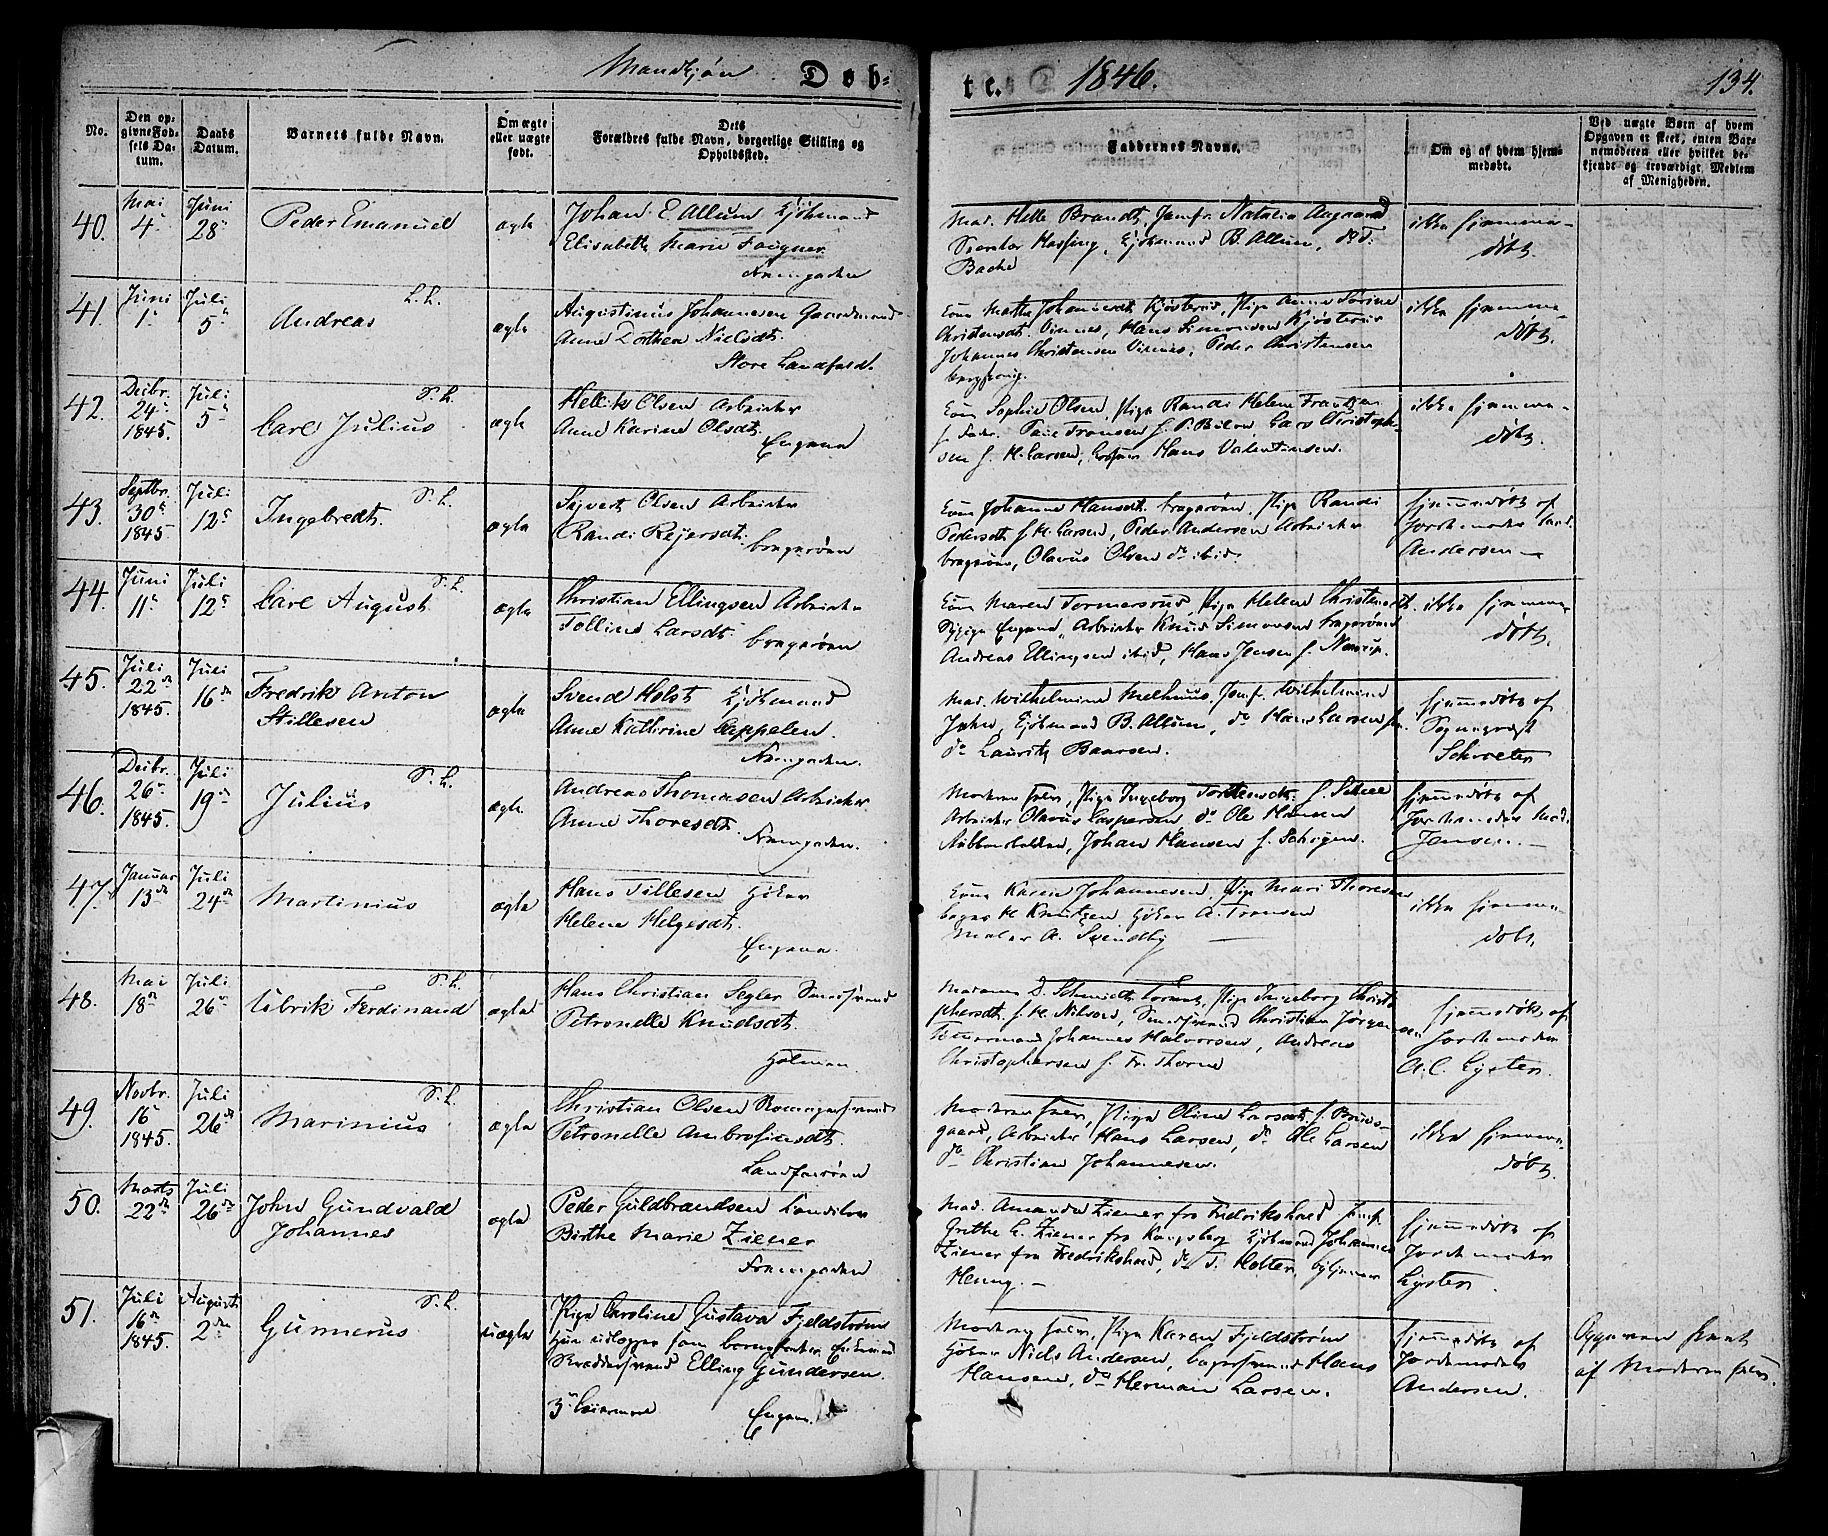 Mandkjøn Døb-
te. 1846. 134.
No.
Den op-
givne Fød-
sels Da-
tum.
Daabs
Datum.
Barnets fulde Navn.
Om ægte
eller uægte
født.
Dets
Forældres fulde Navn, borgerlige Stilling og
Opholdssted.
Faddernes Navne.
Om og af hvem hjem-
medøbt.
Ved uægte Børn af hvem
Opgaven er skeet, enten Bar-
nemoderen eller hvilket be-
kjendt og troværdigt Medlem
af Menigheden.
40. Mai 4 Juni 28 Peder Emanuel ægte
Johan E. Allum Kjøbmand
Elisabeth Marie Faigner
Strømgaden
Mad. Helle Brandt, Jomfr. Natalia Aagaard
Hassing, Kjøbmand B. Allum, do T.
Bache
ikke hjemme-
døbt.
41. Juni 1 Juli 5 Andreas ægte
Augustinus Johannesen Gaardmand
Anne Dorthea Nielsdt.
Store Landfald.
Kone Marthe Johannesdt. Kjøsterud, Pige Anne Sørine
Christensdt. Vinnes, Hans Simonsen Kjøsterud
Johannes Christensen Vinnes, Peder Christensen
ikke hjemme-
døbt.
42. Decbr. 24 1845. Juli 5 S.L. Carl Julius ægte
Hellik Olsen Arbeider
Anne Karine Olsdt.
Engene
Kone Sophie Olsen, Pige Randi Helene Frantzen
Paul Transen f. P. Bülow Lars Christoph-
sen f. H. Larsen, Hans Valentinsen.
ikke hjemme-
døbt.
43. Septbr. 30 1845 Juli 12 S.L. Ingebredt. ægte
Sivert Olsen Arbeider
Randi Reiersdt.
Bragerøen
Kone Johanne Hansdt. Bragerøen, Pige Randi
Pedersdt. f. H. Larsen, Peder Andersen Arbeider
Bragerøen, Olavus Olsen do ibid.
hjemmedøbt af
Jordemoder
Andersen
44. Juni 11 Juli 12 S.L. Carl August. ægte
Christian Ellingsen Arbeider
Tolline Larsdt.
Bragerøen
Kone Maren Tormersrud, Pige Helene Christensdt.
Engene, Arbeider Knud Simonsen Bragerøen
Andreas Ellingsen ibid, Hans Jensen f.
ikke hjemme-
døbt.
45. Juli 22 1845. Juli 16 Fredrik Anton
Stillesen ægte
Svend Holst Kjøbmand
Anne Kathrine Cappelen.
Strømgaden.
Mad. Wilhelmine Melhuus, Jomfr. Wilhelmine
Jahn, Kjøbmand B. Allum, do Hans Larsen
do Lauritz Baarsen.
hjemmedøbt af
Sogneprest
Schroeter
46. Decbr. 26 1845. Juli 19 S.L. Julius ægte
Andreas Thomasen Arbeider
Anne Thoresdt.
Strømgaden.
Moderen selv, Pige Ingeborg Torstensdt. f.
Arbeider Olavus Caspersen do Ole Hansen
Johan Hansen f.
hjemmedøbt af
Jordemoder Mad.
Jensen.
47. Januar 13 Juli 24 Martinius ægte
Hans Tillesen Høker
Helene Helgesdt.
Engene.
Kone Karen Johannesen, Pige Mari Thoresen
H. Knutzen Høker A. Transen
Maler A. Svendby
ikke hjemme-
døbt.
48. Mai 18 Juli 26 S.L. Ulrik Ferdinand ægte
Hans Christian Segler Smedsvend
Petronelle Knudsdt.
Holmen
Madame D. Schmidt Pige Ingeborg Christo-
phersdt. f. H. Nilsen, Smedsvend Christian Jørgensen
Tømmermand Johannes Halvorsen, Andreas
Christophersen f. Fr. Thorne
hjemmedøbt af
Jordemoder
A. C. Lysten.
49. Novbr. 16 1845. Juli 26 S.L. Marinius ægte
Christian Olsen
Petronelle Ambrosiusdt.
Landfaløen
Moderen selv, Pige Oline Larsdt. f. Bruus-
gaard, Arbeider Hans Larsen, do Ole Larsen
do Christian Johannesen.
ikke hjemme-
døbt
50. Marts 22 Juli 26 John Gundvald
Johannes ægte
Peder Guldbrandsen
Birthe Marie Ziener
Strømgaden
Mad. Amanda Ziener fra Fredrikshald Jomfr.
Grethe L. Ziener fra Kongsberg Kjøbmand Johannes
Ziener fra Fredrikshald, do T. Holter,
Henny.
hjemmedøbt af
Jordemoder
Lysten
51. Juli 16 1845. August 2den S.L. Gunnerus uægte
Pige Caroline Gustava Fjeldstrøm
Hun udlægger som barnefader
Skræddersvend Elling Gundersen.
3die Leiermaal Engene.
Moderen selv, Pige Karen Fjeldstrøm
Høker Niels Andersen, Bagersvend Hans
Hansen, do Herman Larsen.
hjemmedøbt af
Jordemoder
Andersen.
Opgaven skeet
af Moderen selv.